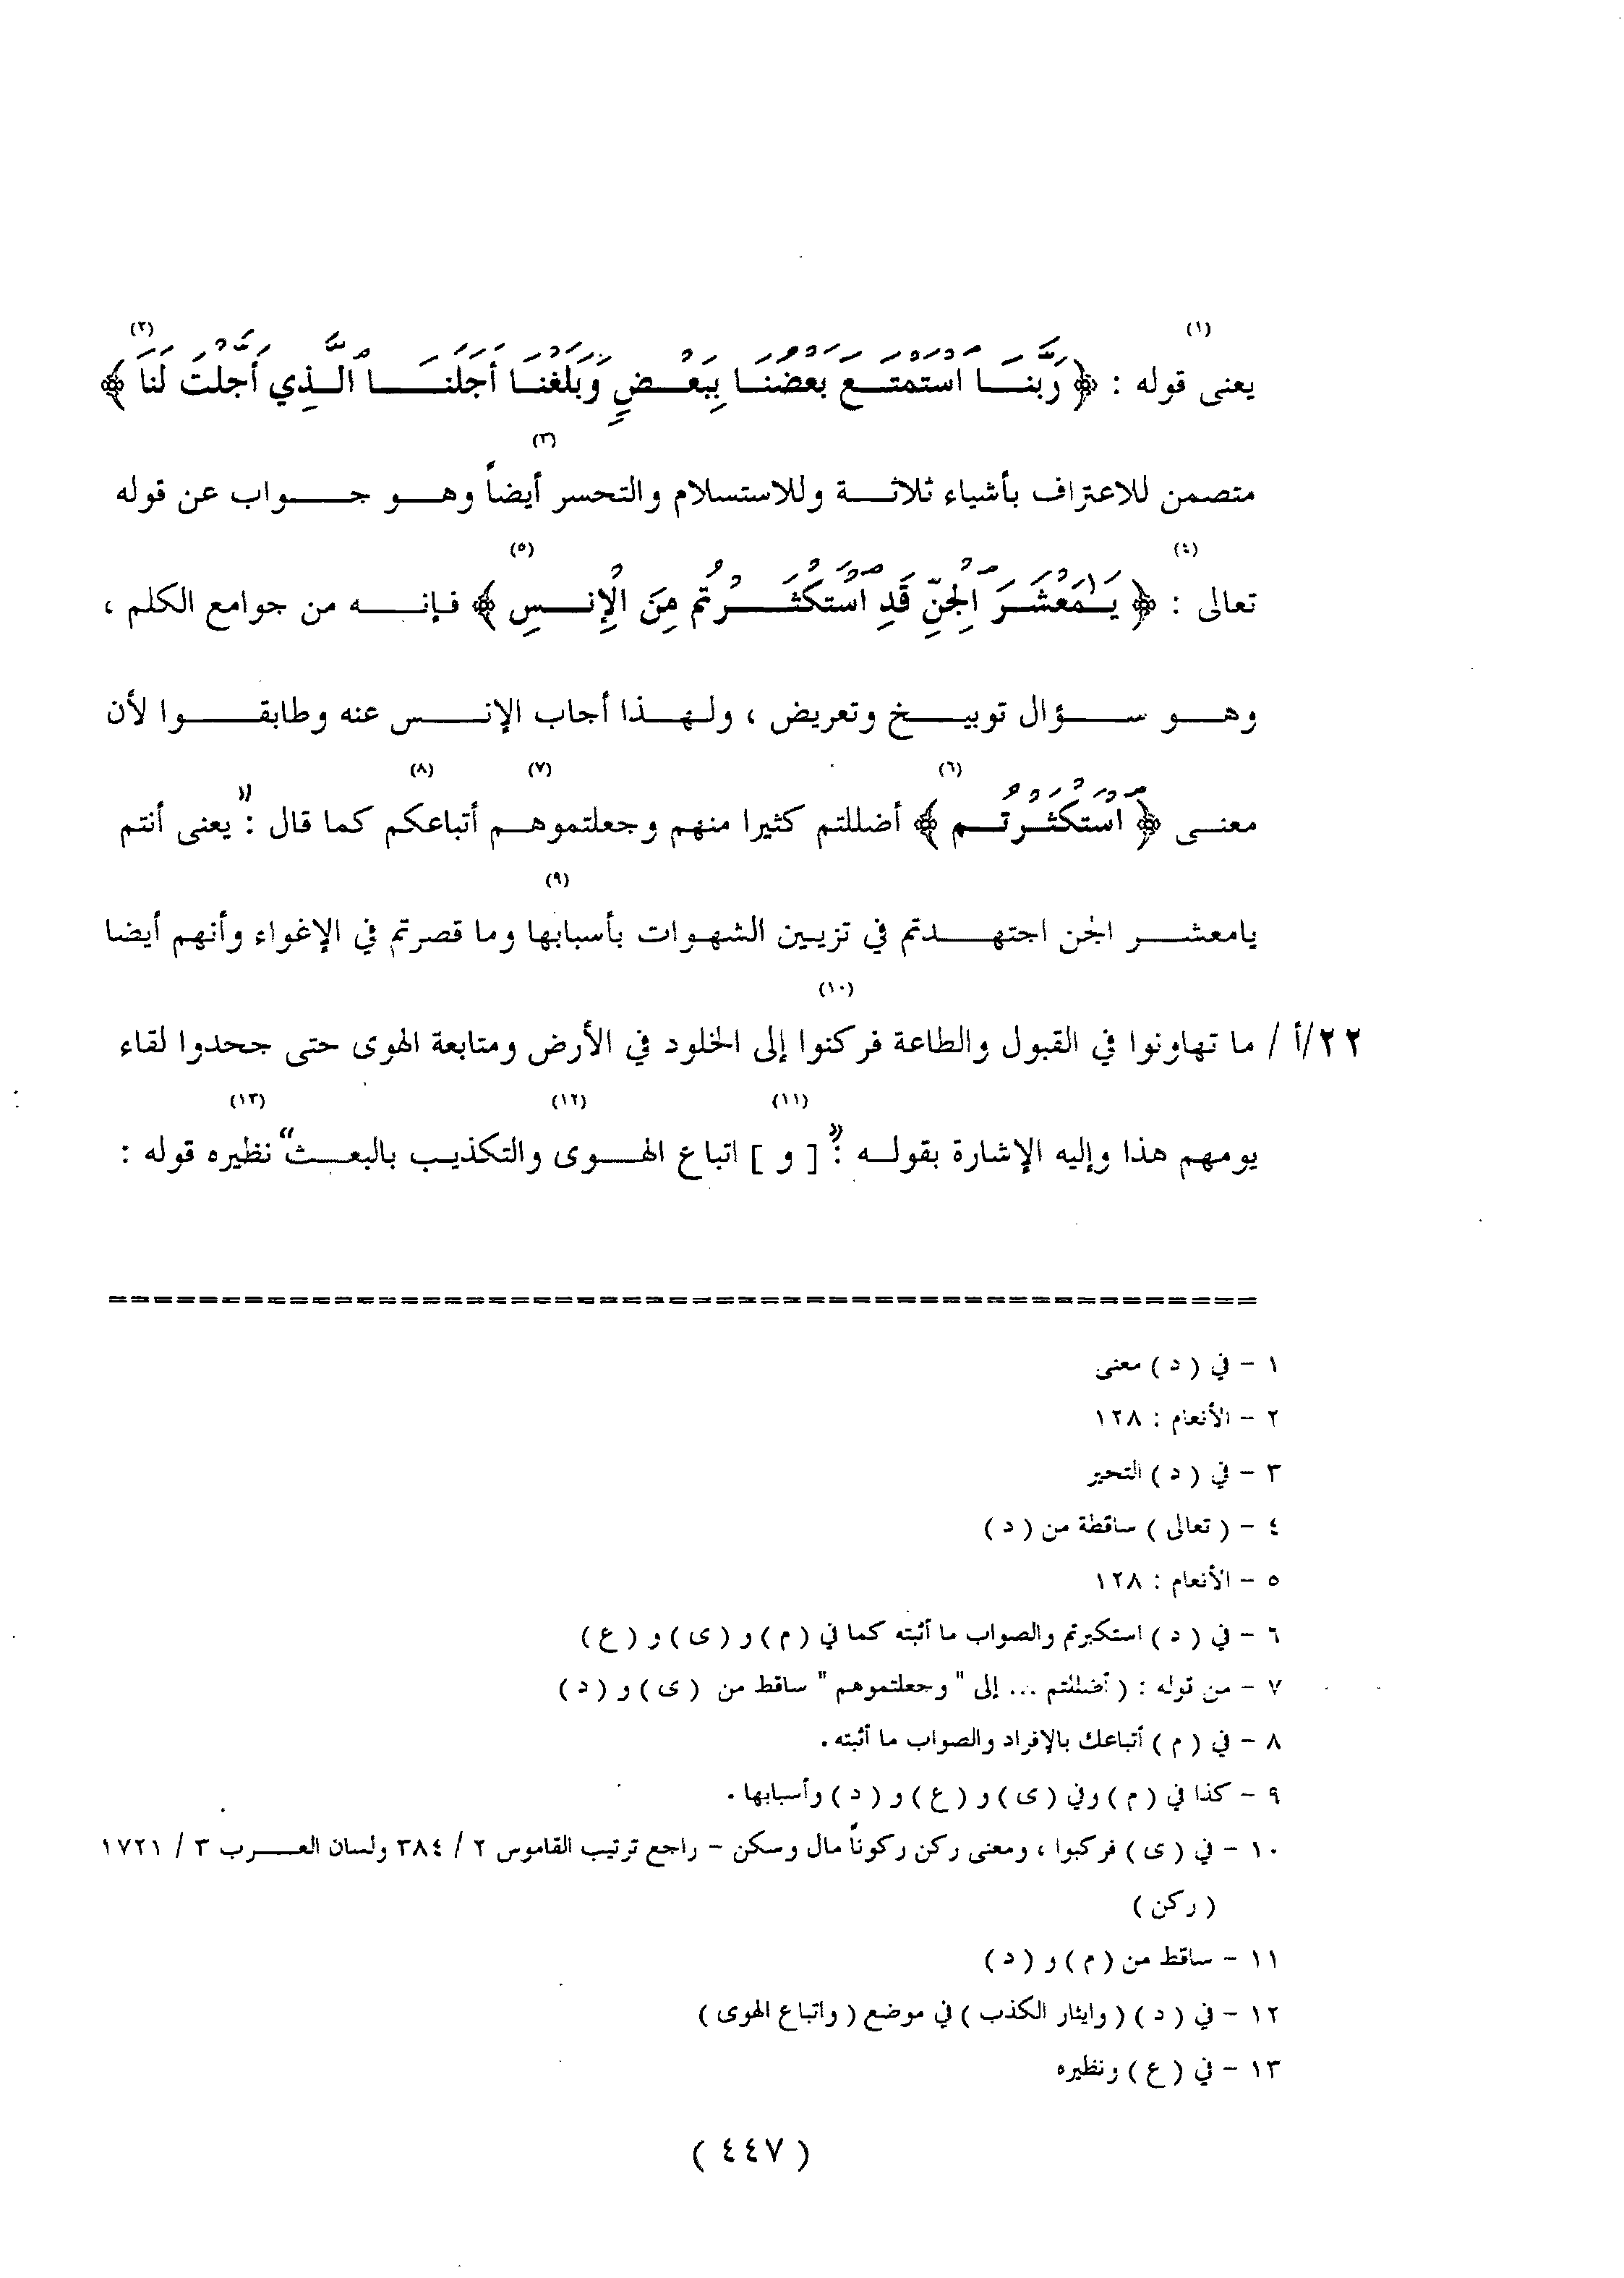 (١) (٢)
يعنى قوله : ﴿ رَبَّنَا اسْتَمْتَعَ بَعْضُنَا بِبَعْضٍ وَبَلَغْنَا أَجَلَنَا الَّذِي أَجَّلْتَ لَنَا ﴾
(٣)
متضمن للاعتراف بأشياء ثلاثة وللاستسلام والتحسر أيضاً وهو جواب عن قوله
(٤) (٥)
تعالى : ﴿ يَـٰمَعْشَرَ الْجِنِّ قَدِ اسْتَكْثَرْتُم مِنَ الْإِنسِ ﴾ فإنه من جوامع الكلم ،
وهو سؤال توبيخ وتعريض ، ولهذا أجاب الإنس عنه وطابقوا لأن
(٦) (٧) (٨)
معنى ﴿ اسْتَكْثَرْتُم ﴾ أضللتم كثيرا منهم وجعلتموهم أتباعكم كما قال : " يعنى أنتم
(٩)
يامعشر الجن اجتهدتم في تزيين الشهوات بأسبابها وما قصرتم في الإغواء وأنهم أيضا
(١٠)
٢٢/أ / ما تهاونوا في القبول والطاعة فركنوا إلى الخلود في الأرض ومتابعة الهوى حتى جحدوا لقاء
(١١) (١٢) (١٣)
يومهم هذا وإليه الإشارة بقوله : " [ و ] اتباع الهوى والتكذيب بالبعث " نظيره قوله :
====================================================
١ - في ( د ) معنى
٢ - الأنعام : ١٢٨
٣ - في ( د ) التحير
٤ - ( تعالى ) ساقطة من ( د )
٥ - الأنعام : ١٢٨
٦ - في ( د ) استكبرتم والصواب ما أثبته كما في ( م ) و ( ى ) و ( ع )
٧ - من قوله : ( أضللتم ... إلى " وجعلتموهم " ساقط من ( ى ) و ( د )
٨ - في ( م ) أتباعك بالإفراد والصواب ما أثبته .
٩ - كذا في ( م ) وفي ( ى ) و ( ع ) و ( د ) وأسبابها .
١٠ - في ( ى ) فركبوا ، ومعنى ركن ركوناً مال وسكن - راجع ترتيب القاموس ٢ / ٣٨٤ ولسان العرب ٣ / ١٧٢١
( ركن )
١١ - ساقط من ( م ) و ( د )
١٢ - في ( د ) ( وايثار الكذب ) في موضع ( واتباع الهوى )
١٣ - في ( ع ) ونظيره
( ٤٤٧ )